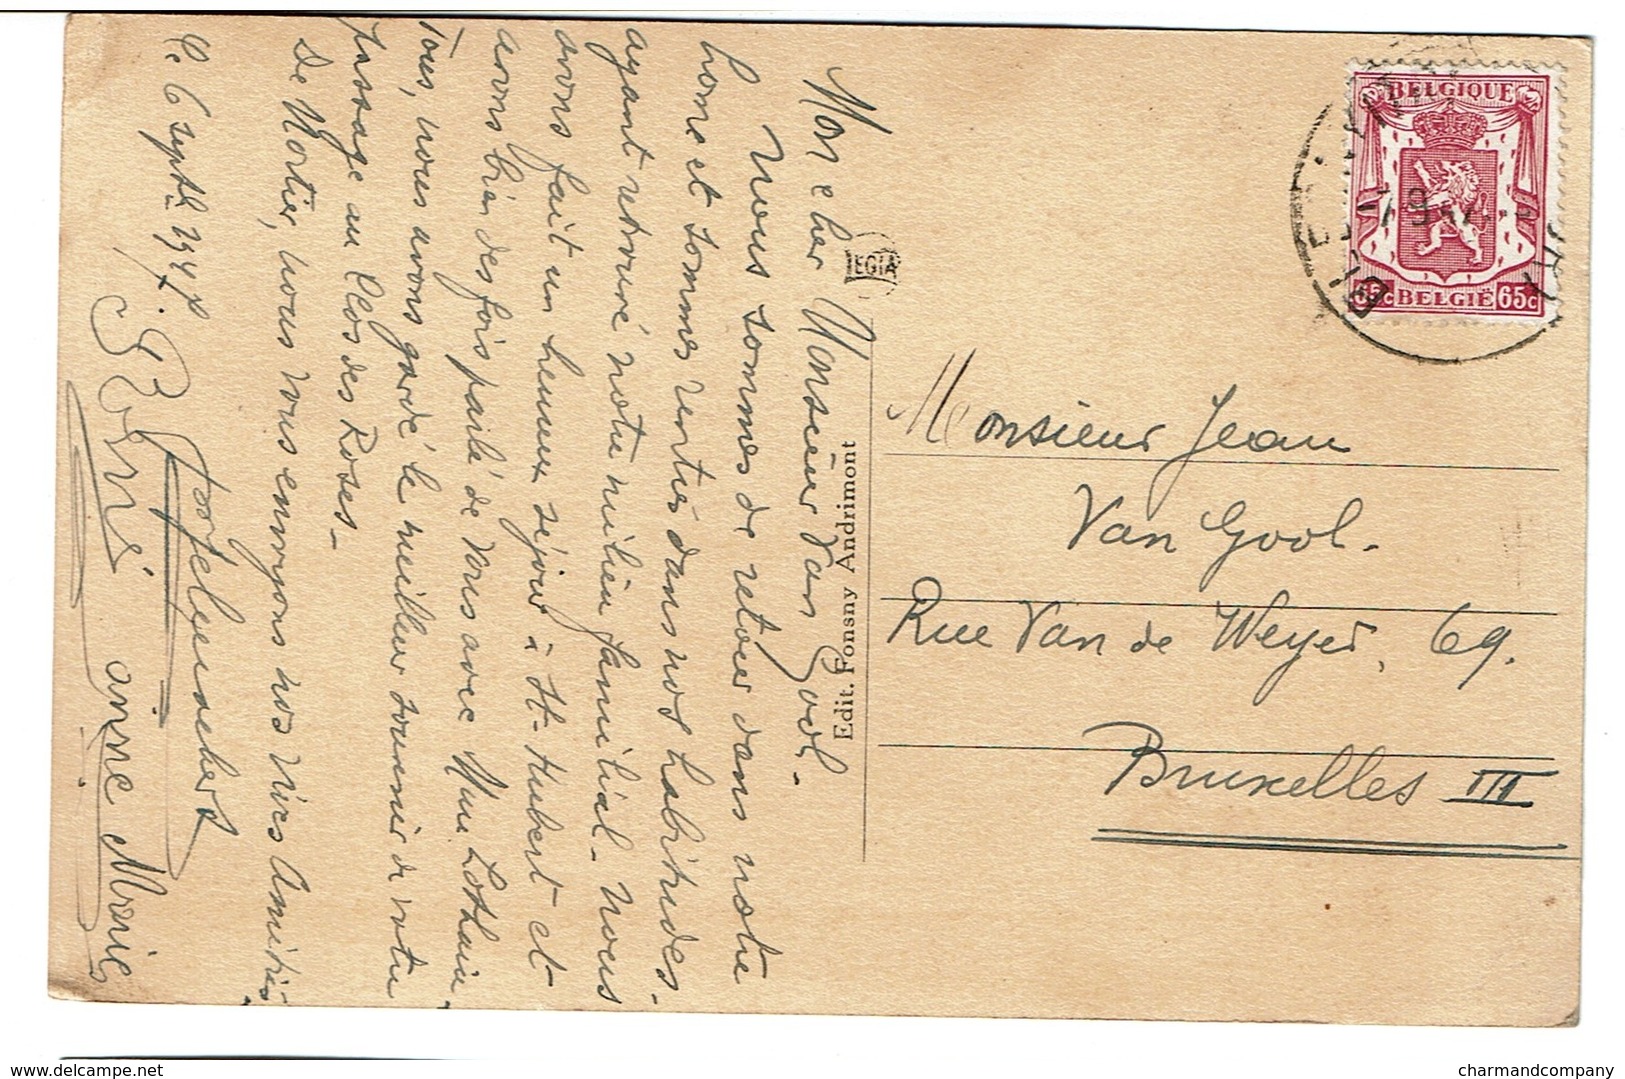 Mon cher Monsieur Van Gool.
Nous sommes de retour dans notre
home et sommes rentrés dans nos habitudes.
ayant retrouvé notre milieu familial. Nous
avons fait un heureux séjour à St-Hubert et
avons bien des fois parlé de vous avec Mme
Tous, nous avons gardé le meilleur souvenir de votre
passage au Clos des Roses -
De Mortier, nous vous envoyons nos Vives Amitiés
le 6 septb. 1947.
Boris
Anne Marie
EGIA
Edit. Fonsny Andrimont
BELGIQUE
65c BELGIË 65c
Monsieur Jean
Van Gool.
Rue Van de Weyer, 69.
Bruxelles III
delcampe.net
charmandcompany